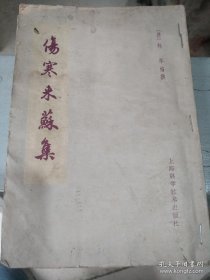 傷寒来蘇集
〔清〕柯 琴編撰
上海科学技术出版社